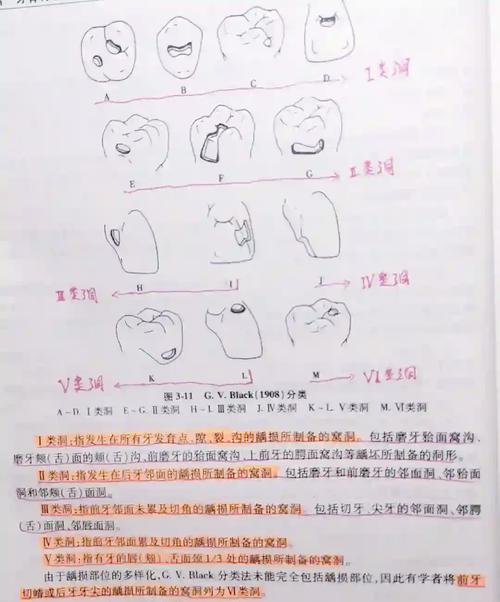 A
B
C
D
I类洞
E
F
G
II类洞
H
I
J
III类洞
IV类洞
K
L
M
V类洞
VI类洞
图 3-11 G. V. Black(1908)分类
A~D. Ⅰ类洞 E~G. Ⅱ类洞 H~I. Ⅲ类洞 J. Ⅳ类洞 K~L. Ⅴ类洞 M. Ⅵ类洞
Ⅰ类洞:指发生在所有牙发育点、隙、裂、沟的龋损所制备的窝洞。包括磨牙𬌗面窝沟、
磨牙颊(舌)面的颊(舌)沟、前磨牙的𬌗面窝沟、上前牙的腭面窝沟等龋坏所制备的洞形。
Ⅱ类洞:指发生在后牙邻面的龋损所制备的窝洞。包括磨牙和前磨牙的邻面洞、邻𬌗面
洞和邻颊(舌)面洞。
Ⅲ类洞:指前牙邻面未累及切角的龋损所制备的窝洞。包括切牙、尖牙的邻面洞、邻腭
(舌)面洞、邻唇面洞。
Ⅳ类洞:指前牙邻面累及切角的龋损所制备的窝洞。
Ⅴ类洞:指有牙的唇(颊)、舌面颈 1/3 处的龋损所制备的窝洞。
由于龋损部位的多样化,G. V. Black 分类法未能完全包括龋损部位,因此有学者将前牙
切嵴或后牙牙尖的龋损所制备的窝洞列为Ⅵ类洞。